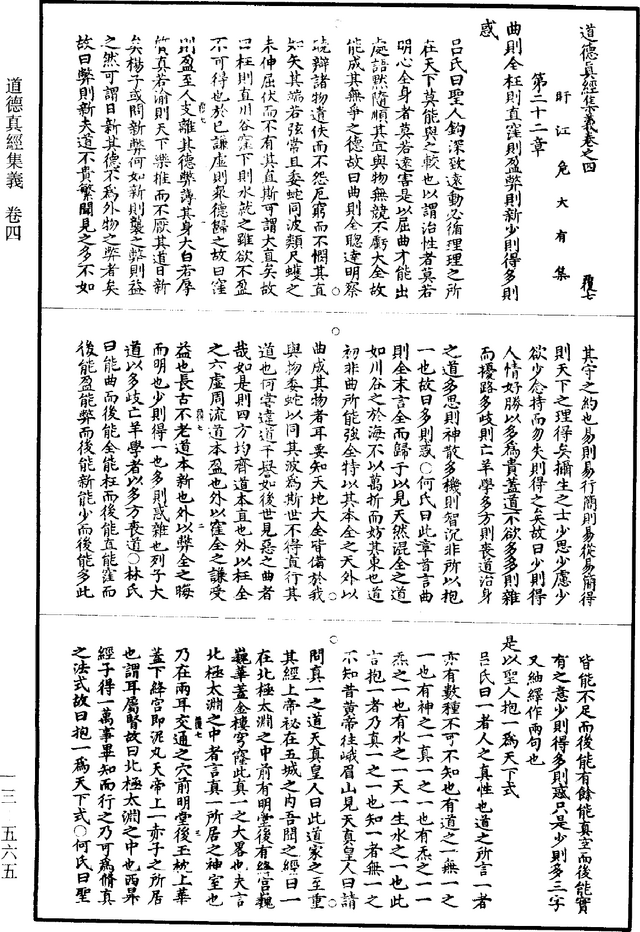 道德真經集義卷之四
盱江危大有集 覆七
第二十二章
曲則全枉則直窪則盈弊則新少則得多則
惑
呂氏曰聖人鈎深致遠動必循理理之所
在天下莫能與之較也以謂治性者莫若
明心全身者莫若遠害是以屈曲才能出
處語默隨順其宜與物無競不虧大全故
能成其無爭之德故曰曲則全聰達明察
曉辯諸物道佚而不怨厄窮而不憫其直
如矢其端若弦常且委蛇同波類尺蠖之
未伸屈伏而不有其直斯可謂大直矣故
曰枉則直川谷窪下則水就之雖欲不盈
不可得也於己謙虛則衆德歸之故曰窪
則盈至人支離其德弊薄其身大白若辱
質真若渝則天下樂推而不厭其道日新
矣楊子或問新弊何如新則襲之弊則益
之然可謂日新其德不為外物之弊者矣
故曰弊則新夫道不貴繁聞見之多不如
其守之約也易則易行簡則易從易簡得
則天下之理得矣攝生之士少思少慮少
欲少念持而勿失則得之矣故曰少則得
人情好勝以多為貴蓋道不欲多多則雜
而擾路多歧則亡羊學多方則喪道治身
之道多思則神散多機則智沉非所以抱
一也故曰多則惑○何氏曰此章首言曲
則全末言全而歸于以見天然混全之道
如川谷之於海不以萬折而妨其東也道
初非曲所能強全特以其本全之天外以
曲成其物者耳要知天地大全皆備於我
與物委蛇以同其波為斯世不得直行其
道也何常違道干譽如後世見惡之曲者
哉如是則四方均齊道本直也外以枉全
之六虛周流道本盈也外以窪全之謙受
益也長古不老道本新也外以弊全之晦
而明也少則得一也多則惑雜也列子大
道以多歧亡羊學者以多方喪道○林氏
曰能曲而後能全能枉而後能直能窪而
後能盈能弊而後能新能少而後能多此
皆能不足而後能有餘能真空而後能實
有之意少則得多則惑只是少則多三字
又紬繹作兩句也
是以聖人抱一為天下式
呂氏曰一者人之真性也道之所言一者
亦有數種不可不知也有道之一無一之
一也有神之一真一之一也有炁之一一
炁之一也有水之一天一生水之一也此
言抱一者乃真一之一也知一者無一之
不知昔黃帝往峨眉山見天真皇人曰請
問真一之道天真皇人曰此道家之至重
其經上帝祕在五城之內吾聞之經曰一
在北極太淵之中前有明堂後有絳宮巍
巍華蓋金樓穹窿此真一之大畧也夫言
北極太淵之中者言真一所居之神室也
乃在兩耳交通之穴前明堂後玉枕上華
蓋下絳宮即泥丸天帝上一赤子之所居
也謂耳屬腎故曰北極太淵之中也西昇
經子得一萬事畢知而行之乃可為脩真
之法式故曰抱一為天下式○何氏曰聖
道德真經集義 卷四
一三 五六五